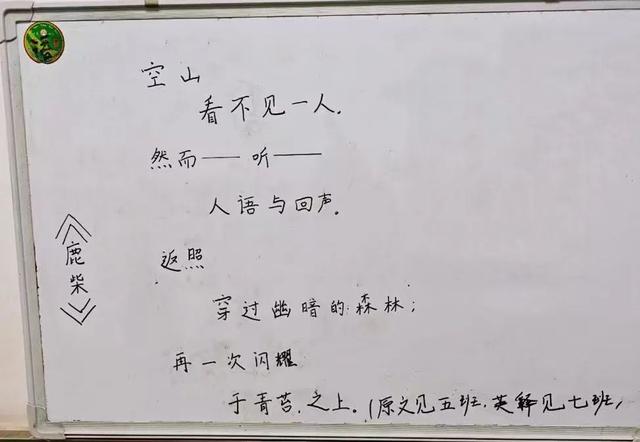 空山
看不见一人.
然而——听——
人语与回声。
返照
穿过幽暗的森林；
再一次闪耀
于青苔之上。(原文见五班.英释见七班,
《鹿柴》